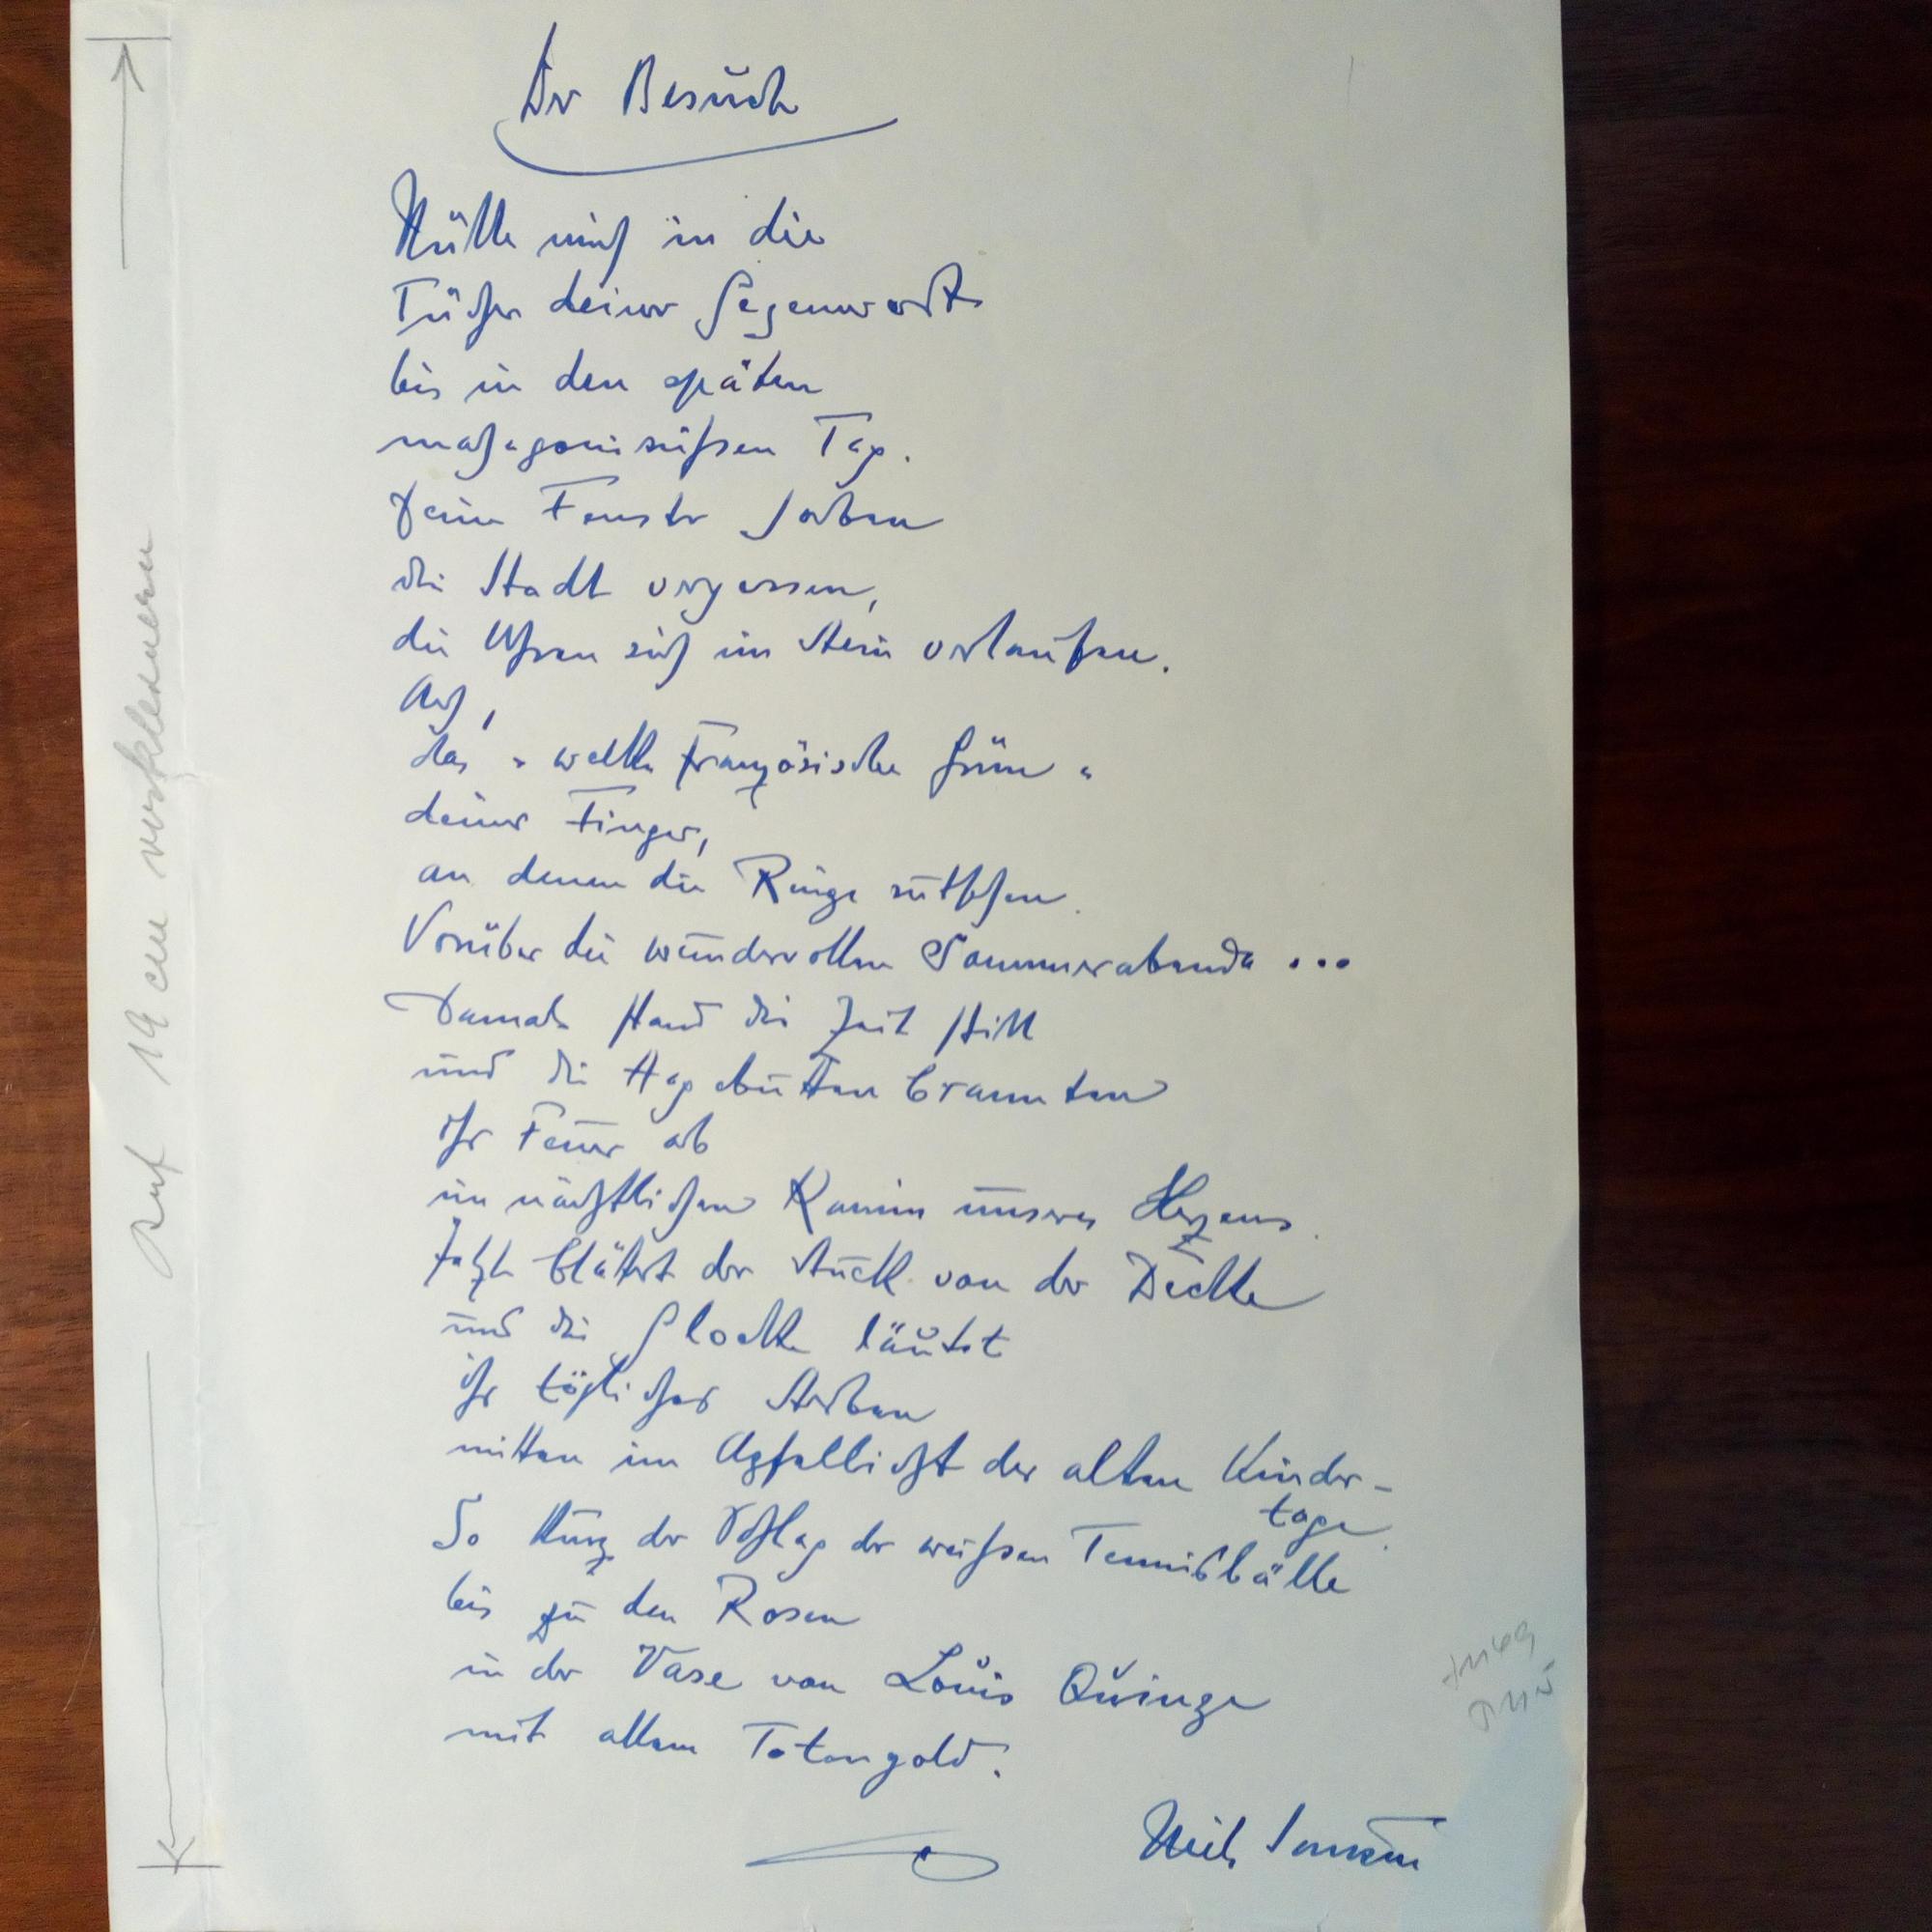 Der Besuch
Hülle mich in die
Tücher deiner Gegenwart
bis in den späten
mahagonisüßen Tag.
Deine Fenster haben
die Stadt vergessen,
die Uhren sich im Stein verlaufen.
Ach,
das „welke französische Grün“
deiner Finger,
an denen die Ringe rutschen.
Vorüber die wundervollen Sommerabende ...
Damals stand die Zeit still
und die Hagebutten brannten
ihr Feuer ab
im nächtlichen Kamin unseres Herzens.
Jetzt blättert der Stuck von der Decke
und die Glocke läutet
ihr tägliches Sterben
mitten im Apfellicht der alten Kinder-
tage.
So kurz der Schlag der weißen Tennisbälle
bis zu den Rosen
in der Vase von Louis Quinze
mit altem Totengold.
auf 19 cm verkleinern